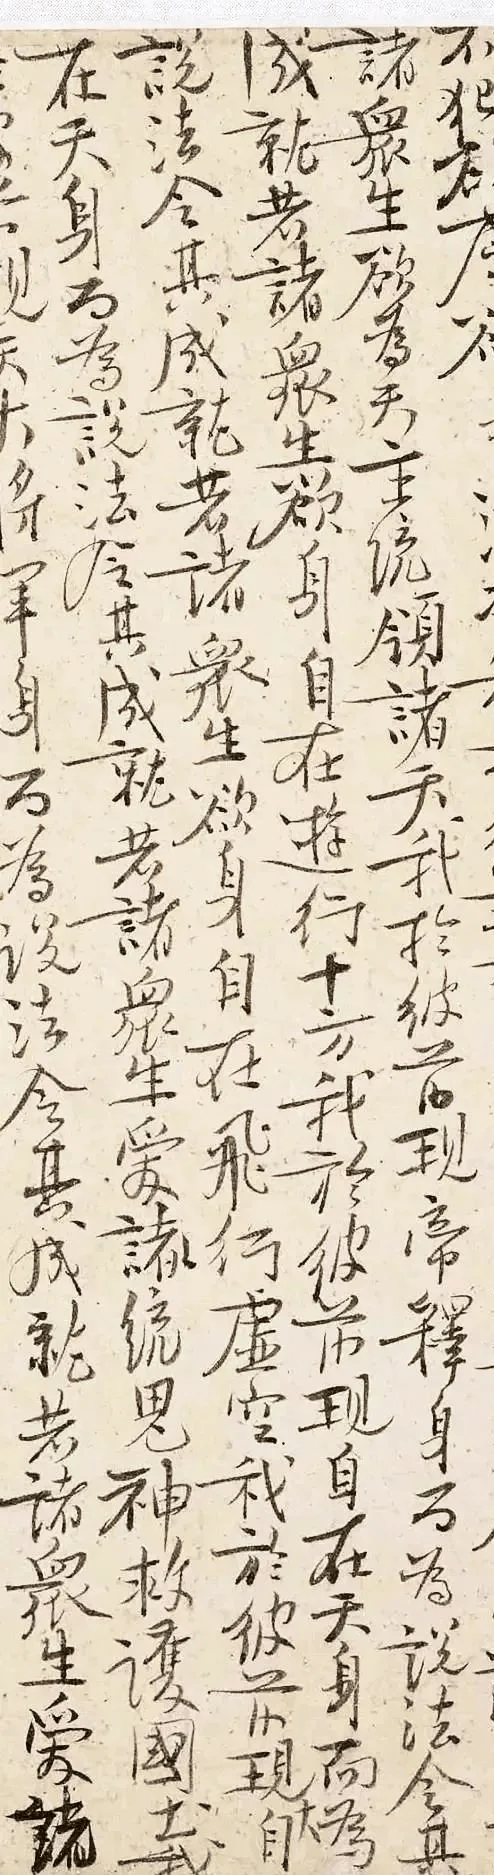 不犯欲塵欲
諸衆生欲為天主統領諸天我於彼前現帝釋身而為說法令其
成就若諸衆生欲身自在遊行十方我於彼前現自在天身而為
說法令其成就若諸衆生欲身自在飛行虛空我於彼前現大自
在天身而為說法令其成就若諸衆生愛統鬼神救護國土我
前現天大将軍身而為說法令其成就若諸衆生愛諸